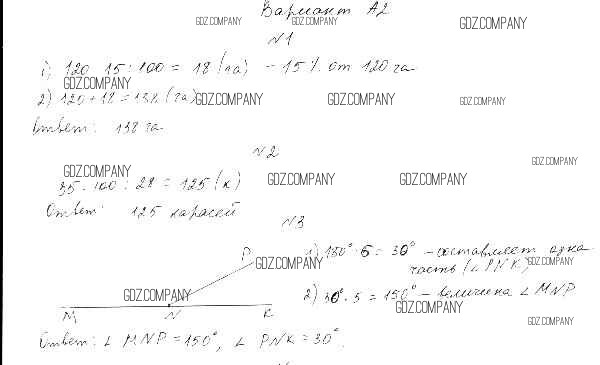 Вариант А2
GDZ.COMPANY GDZ.COMPANY GDZ.COMPANY
N1
1) 120 · 15 : 100 = 18 (га) – 15% от 120 га
GDZ.COMPANY
2) 120 + 18 = 138 (га) GDZ.COMPANY GDZ.COMPANY GDZ.COMPANY
Ответ: 138 га
N2
GDZ.COMPANY GDZ.COMPANY GDZ.COMPANY GDZ.COMPANY
35 · 100 : 28 = 125 (к)
Ответ: 125 карасей
N3
P 1) 180° : 6 = 30° – составляет одна
GDZ.COMPANY часть (∠ PNK) GDZ.COMPANY
GDZ.COMPANY 2) 30° · 5 = 150° – величина ∠ MNP
GDZ.COMPANY
M N K
GDZ.COMPANY
Ответ: ∠ MNP = 150°, ∠ PNK = 30°.